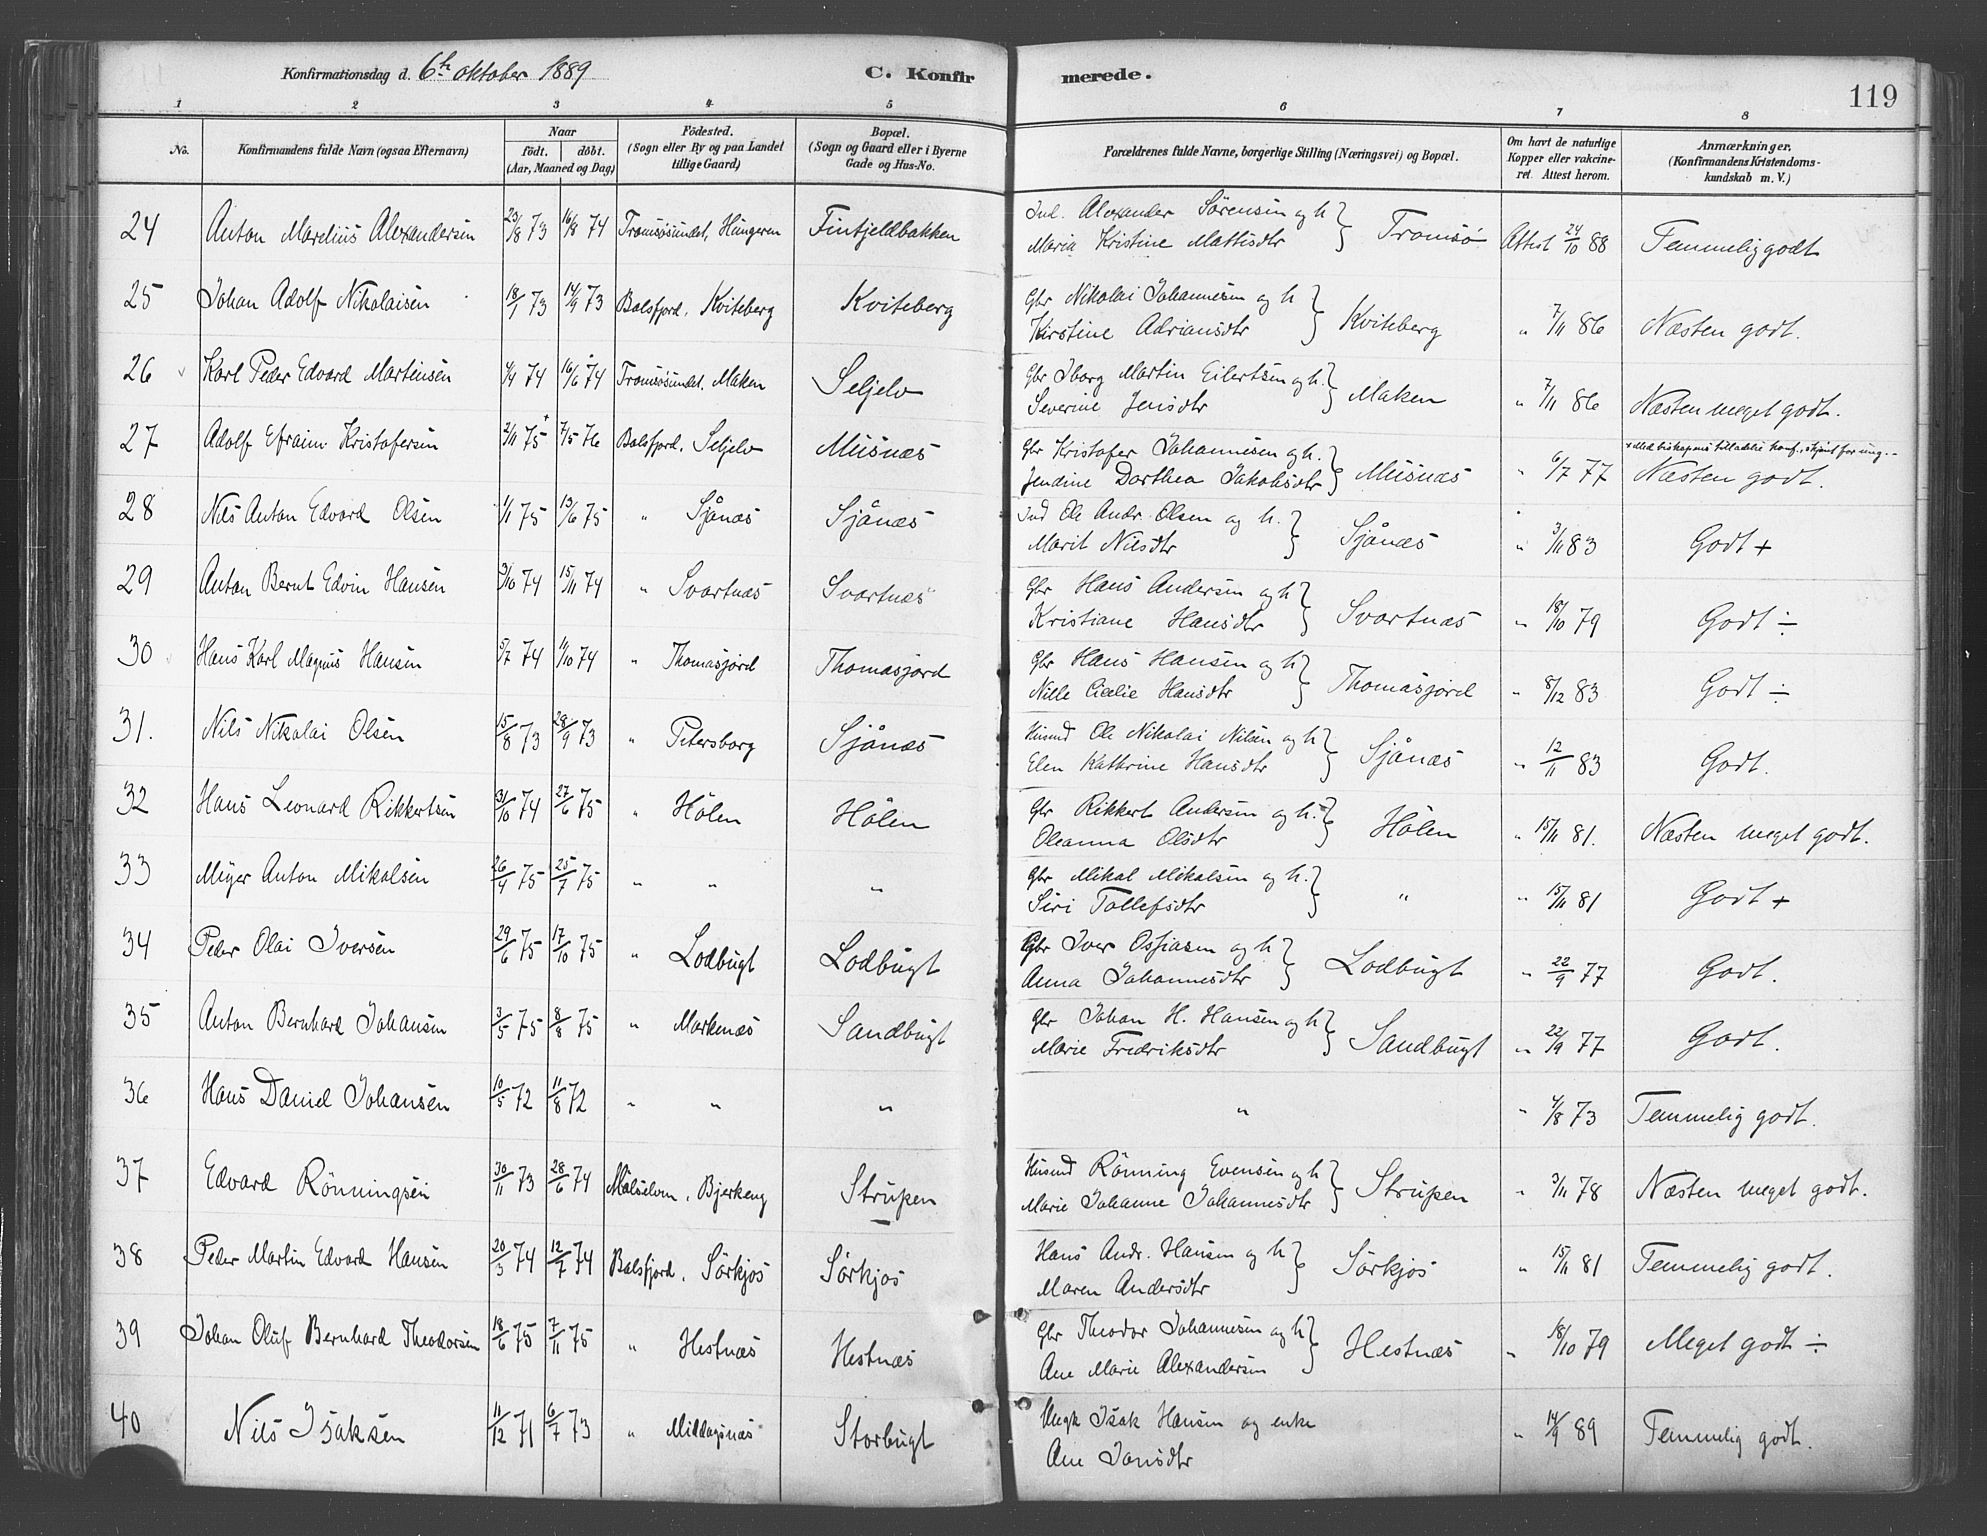 Konfirmationsdag d. 6te oktober 1889
C. Konfirmerede.
119
1 2 3 4 5 6 7 8
No.
Konfirmandens fulde Navn (ogsaa Efternavn)
Naar
födt. döbt.
(Aar, Maaned og Dag)
Födested.
(Sogn eller By og paa Landet
tillige Gaard)
Bopæl.
(Sogn og Gaard eller i Byerne
Gade og Hus-No.
Forældrenes fulde Navne, borgerlige Stilling (Næringsvei) og Bopæl.
Om havt de naturlige
Kopper eller vakcine-
ret. Attest herom.
Anmærkninger.
(Konfirmandens Kristendoms-
kundskab m. V.)
24 Anton Marelius Alexandersen 23/8 73 16/8 74 Tromsösundet, Hungeren Finfjeldbakken Ind. Alexander Sörensen og h } Tromsö Attest 24/10 88 Temmelig godt
Maria Kristine Mattisdtr
25 Johan Adolf Nikolaisen 18/1 73 14/9 73 Balsfjord, Kviteberg Kviteberg Gbr Nikolai Johannesen og h } Kviteberg " 7/11 86 Næsten godt.
Kirstine Adriansdtr
26 Karl Peder Edvard Martinsen 4/4 74 16/6 74 Tromsösundet, Maken Seljelv Gbr Iborg Martin Eilertsen og h. } Maken " 7/11 86 Næsten meget godt.
Severine Jensdtr
27 Adolf Efraim Kristofersen 2/11 75 + 7/5 76 Balsfjord, Seljelv Meisnæs Gbr Kristofer Johannesen og h. } Meisnæs " 6/7 77 + Med biskopens tilladelse konf., skjönt for ung.
Jendine Dorthea Jakobsdtr Næsten godt.
28 Nils Anton Edvard Olsen 1/1 75 13/6 75 " Sjånæs Sjånæs Ind Ole Andr. Olsen og h. } Sjånæs " 3/11 83 Godt +
Marit Nilsdtr
29 Anton Bernt Edvin Hansen 3/10 74 15/11 74 " Svartnæs Svartnæs Gbr Hans Andersen og h } Svartnæs " 18/10 79 Godt ÷
Kristiane Hansdtr
30 Hans Karl Magnus Hansen 5/7 74 4/10 74 " Thomasjord Thomasjord Gbr Hans Hansen og h } Thomasjord " 8/12 83 Godt ÷
Nille Cicelie Hansdtr
31. Nils Nikolai Olsen 15/8 73 28/9 73 " Petersborg Sjånæs Husmd Ole Nikolai Nilsen og h } Sjånæs " 12/11 83 Godt.
Elen Kathrine Hansdtr
32 Hans Leonard Rikkertsen 31/10 74 27/6 75 " Hölen Hölen Gbr Rikkert Andersen og h. } Hölen " 15/11 81. Næsten meget godt.
Oleanna Olsdtr
33 Meyer Anton Mikalsen 26/4 75 25/7 75 " " " Gbr Mikal Mikalsen og h. } " " 15/11 81 Godt +
Siri Tollefsdtr
34 Peder Olai Iversen 29/6 75 17/10 75 " Lodbugt Lodbugt Gbr Iver Ossiasen og h } Lodbugt " 22/9 77 Godt.
Anna Johannesdtr
35 Anton Bernhard Johansen 3/5 75 8/8 75 " Markenæs Sandbugt Gbr Johan H. Hansen og h } Sandbugt " 22/9 77 Godt.
Marie Fredriksdtr
36 Hans Daniel Johansen 10/5 72 11/8 72 " " " " " 4/8 73 Temmelig godt.
37 Edvard Rönningsen 30/11 73 28/6 74 Målselven, Bjerkeng Strupen Husmd Rönning Evensen og h } Strupen " 3/11 78 Næsten meget godt.
Marie Johanne Johannesdtr
38 Peder Martin Edvard Hansen 20/3 74 12/7 74 Balsfjord, Sörkjos Sörkjos Hans Andr. Hansen og h } Sörkjos " 15/11 81 Temmelig godt.
Maren Andersdtr
39 Johan Oluf Bernhard Theodorsen 18/6 75 7/11 75 " Hestnæs Hestnæs Gbr Theodor Johannesen og h } Hestnæs " 18/10 79 Meget godt ÷
Ane Marie Alexandersen
40 Nils Isaksen 11/12 71 6/7 73 " Middagsnæs Storbugt Ungk Isak Hansen og enke " 14/9 89 Temmelig godt.
Ane Jonsdtr